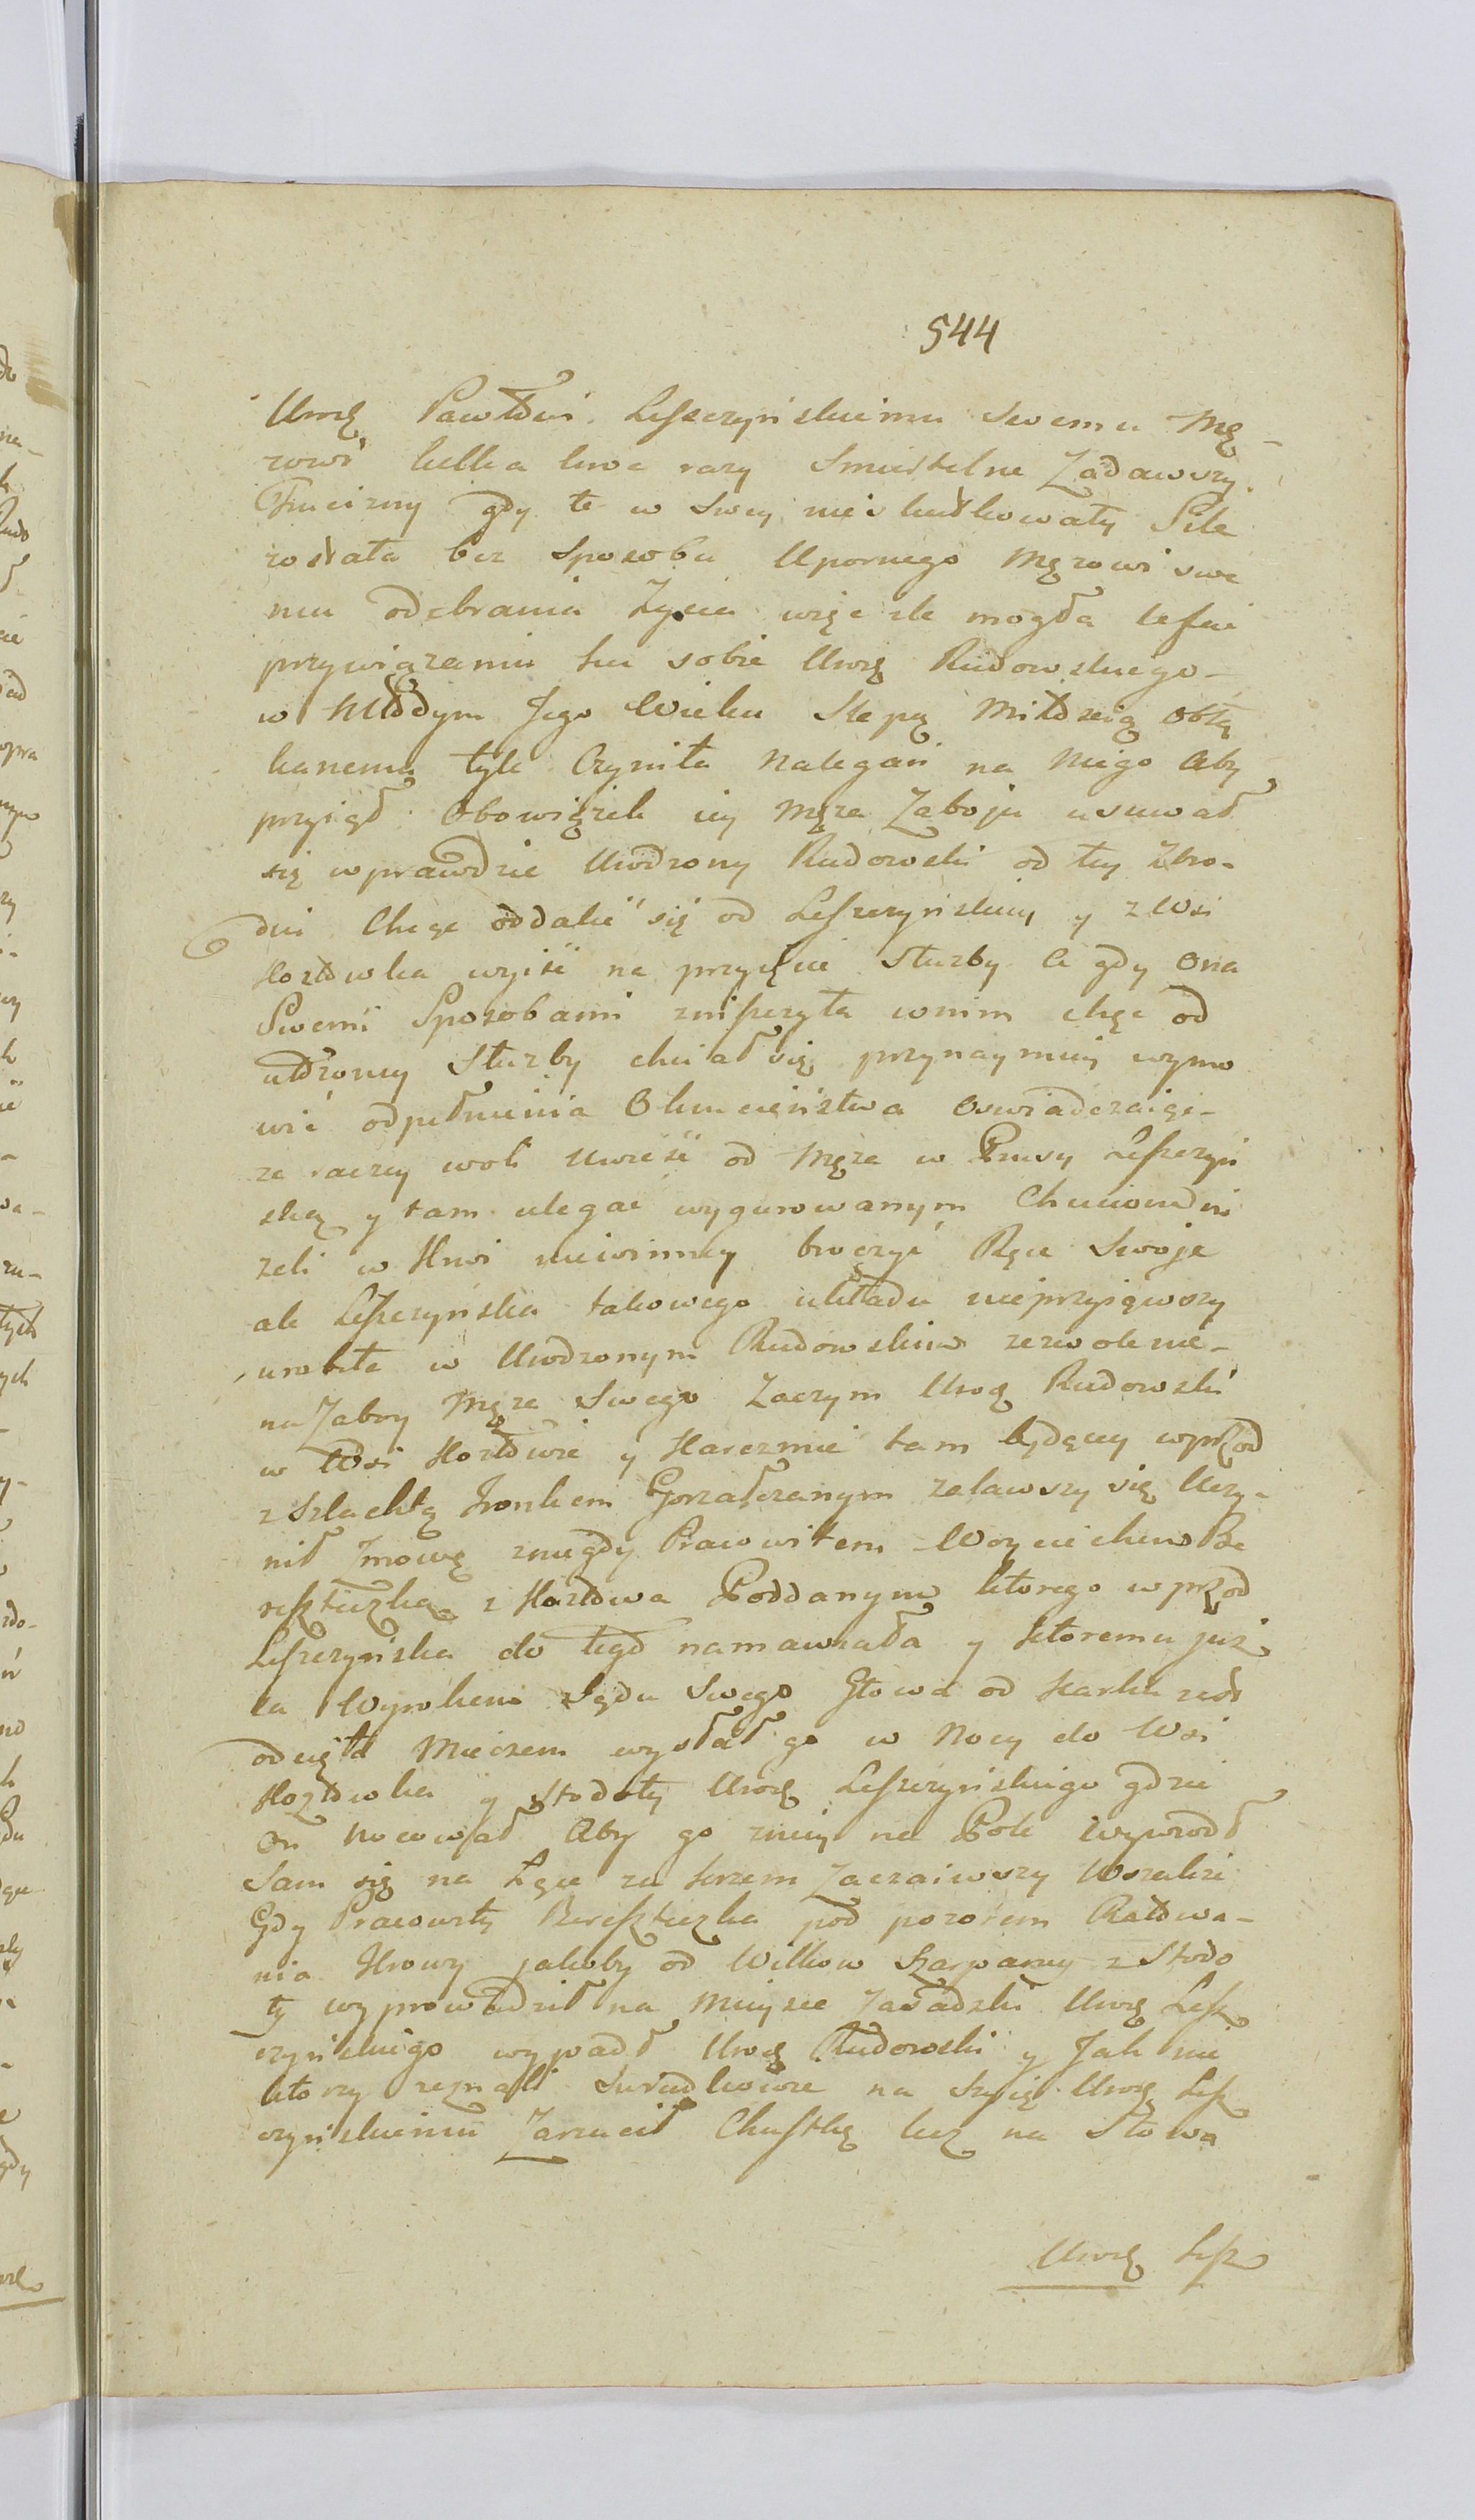 544
Uroz Pawłowi Leszczyńskiemu swemu Mę-
zowi kilka kroć razy Smiertelne Zadawszy
Trucizny gdy te w swey nieskutkowały Sile
została bez sposobu Upornego Mężowi swe
mu odebrania Zycia więc ile mogła
przywiązaniu ku sobie Uroz Rudowskiego-
w Młodym Jego Wieku Slepą Miłością obłą
kanemu tyle Czyniła Nalegań na Niego Aby
przyiął Obowiązek iey Męża Zaboju usuwał
się wprawdzie Urodzony Rudowski od tey Zbro-
dni Chcąc oddalić się od Leszczyńskiey y z Wsi
Kozłowka wyiść na przyięcie Słuzby A gdy Ona
Swemi Sposobami zniszczyła wnim chęć od
utdzoney Słuzby chciał się przynaymniey wymo
wić odpełnienia Okrucieństwa oswiadczaiąc-
ze raczey woli Uwieść od Męża w Prusy Leszczyń
ską y tam ulegać wygurowanym Chuciom niż
zeli w Krwi niewinney broczyć Ręce Swoje
ale Leszczyńska takowego układu nieprzyiąwszy
urobiła w Urodzonym Rudowskim zezwolenie-
na Zaboy Męża Swego Zaczym Uroz Rudowski
w Wsi Kozłowie y Karczmie tam będącey wprzod
z Szlachtą Tronkiem Gorzałczanym zalawszy się Uczy-
nił Zmowę zniegdy Pracowitem Woyciechem Be
reszteczka z Kozłowa Poddanym ktorego wprzod
Leszczyńska do tego namawiała y ktoremu już
za Wyrokiem Sądu Swego Głowa od Karku
odcięta Mieczem wysłał go w Nocy do Wsi
Kozłowka y Stodoły Uroz Leszczyńskiego gdzie
On nocował Aby go zniey na Pole wywiodł
Sam się na Łące za krzem Zaczaiwszy Wszakże
Gdy Pracowity Bereszteczka pod pozorem Ratowa-
nia Krowy jakoby od Wilkow Szarpaney z Stodo
ły wyprowadził na Mieysce Zasadzki Uroz Lesz
czyńskiego wypadł Uroz Rudowski y Jak nie
ktorzy zeznali Swiadkowie na Szyię Uroz Lesz
czyńskiemu Zarzucił Chustkę lecz na Słowa
Uroz Lesz